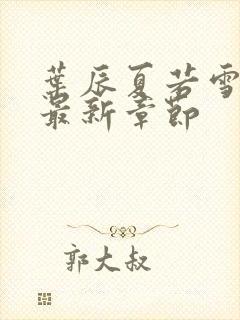 葉辰夏若雪
最新章節
郭大叔